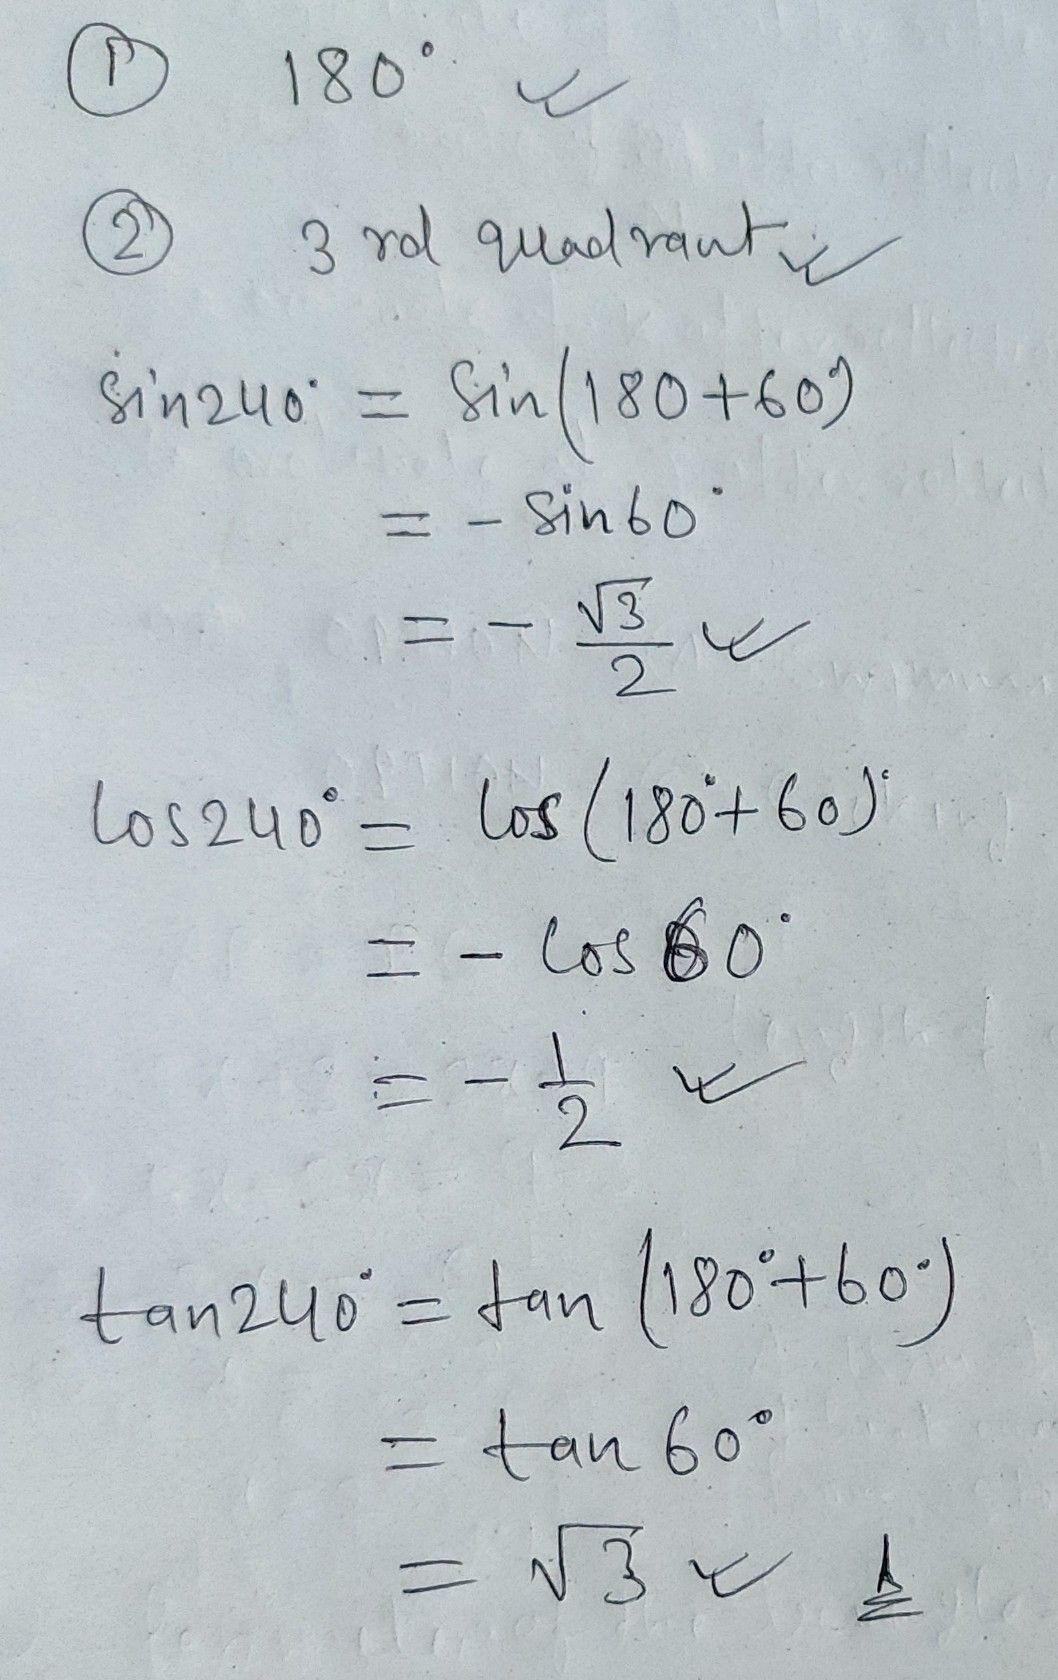 ① 180°
② 3rd quadrant
sin240° = sin(180+60°)
= - sin60°
= - √3/2
cos240° = cos(180°+60)°
= - cos60°
= - 1/2
tan240° = tan(180°+60°)
= tan60°
= √3